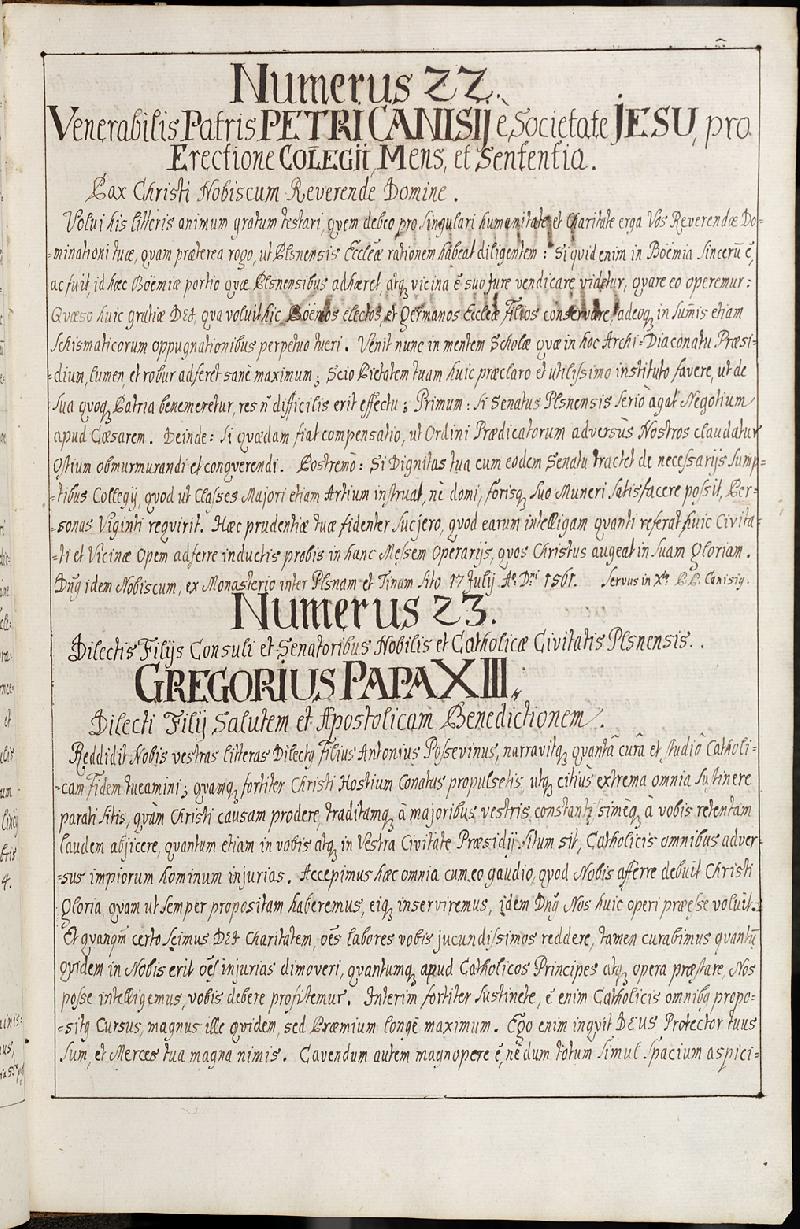 Numerus 22.
Venerabilis Patris PETRI CANISIJ è Societate JESU, pro
Erectione COLEGIJ, Mens, et Sententia.
Pax Christi Nobiscum Reverende Domine.
Volui his litteris animum gratum testari, quem debeo pro singulari humanitate et Charitate erga Vos Reverendæ Do=
=minationi tuæ, quam præterea rogo, ut Plsnensis Eccleæ rationem habeat diligentem: Si quid enim in Boëmia sincerũ ẽ,
ac fuit, id hæc Boëmiæ portio quæ Plsnensibus adhæret atq, vicina ẽ suo jure vendicare videtur, quare eo operemur:
Quæso huic gratiæ DEI, qua voluit hic Boëmos electos, et Germanos Eccleæ Filios conservare, adeoq, in sum̃is etiam
Schismaticorum oppugnationibus perpetuo tueri. Venit nunc in mentem Scholæ quæ in hoc Archi-Diaconatu Præsi=
=dium, lumen, et robur adferet sanè maximum; Scio Pietatem tuam huic præclaro et utilissimo instituto favere, ut de
sua quoq, Patria benemeretur, res ñ difficilis erit effectu; Primum: Si Senatus Plsnensis seriò agat Negotium
apud Cæsarem. Deinde: Si quædam fiat compensatio, ut Ordini Prædicatorum adversùs Nostros claudatur
Ostium obmurmurandi et conquerendi. Postremò: Si Dignitas tua cum eodem Senatu tractet de necessarijs sump=
=tibus Collegij, quod ut Classes Majori etiam Artium instruat, nè domi, forisq, suo Muneri satisfacere possit, Per=
sonas Viginti requirit. Hæc prudentiæ tuæ fidenter sucjero, quod earum intelligam quanti referat huic Civita=
=ti et Vicinæ Opem adferre inductis probis in hanc Messem Operarijs, quos Christus augeat in suam Gloriam.
Dñs idem Nobiscum, ex Monasterio inter Plsnam et Tinam sito 17 Julij Aõ Dñi 1561. Servus in Xto P.P. Canisiq.
Numerus 23.
Dilectis Filijs Consuli et Senatoribus Nobilis et Catholicæ Civitatis Plsnensis..
GREGORIUS PAPA XIII.
Dilecti Filij Salutem et Apostolicam Benedictionem.
Reddidit Nobis vestras litteras Dilectq Filius Antonius Possevinus, narravitq, quantâ curâ et studiô Catholi=
=cam Fidem tueamini; quamq, fortiter Christi Hostium Conatus propulsetis, utq, citiùs extrema omnia sustinere
parati sitis, quàm Christi causam prodere, traditamq, à majoribus vestris, constantissimeq, à vobis retentam
laudem abjicere, quantum etiam in vobis atq, in Vestra Civitate Præsidij situm sit, Catholicis omnibus adver=
=sus impiorum hominum injurias. Accepimus hæc omnia cum eo gaudio, quod Nobis afferre debuit Christi
Gloria quam ut semper propositam haberemus, eiq, inserviremus, idem Dñs Nos huic operi præesse voluit.
Et quanqm̃ certo scimus DEI Charitatem, oẽs labores vobis jucundissimos reddere, tamen curabimus quantũ
quidem in Nobis erit oẽs injurias dimoveri, quantumq, apud Catholicos Principes atq, opera præstare, Nos
posse intelligemus, vobis debere profitemur. Interim fortiter sustinete, ẽ enim Catholicis omnibq propo=
=sitq Cursus, magnus ille quidem, sed Præmium longè maximum. Ego enim inquit DEUS Protector tuus
sum, et Merces tua magna nimis. Cavendum autem magnopere ẽ, nè dum totum simul spacium aspici=